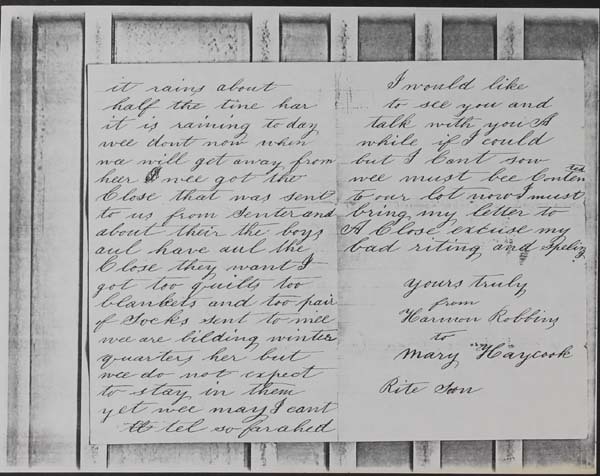 it rains about
half the time har
it is raining to day
wee dont now when
wee will get away from
heer wee got the
Close that was sent
to us from Senter and
about their the boys
aul have aul the
Close they want I
got too quilts too
blankets and too pair
of Socks sent to mee
wee are bilding winter
quarters her but
wee do not expect
to stay in them
yet wee may I cant
tel so far ahed
I would like
to see you and
talk with you A
while if I could
but I Cant sow
wee must bee Contented
to our lot now I must
bring my letter to
A Close excuse my
bad riting and Speling
yours truly
from
Harmon Robbins
to
Mary Haycook
Rite Soon